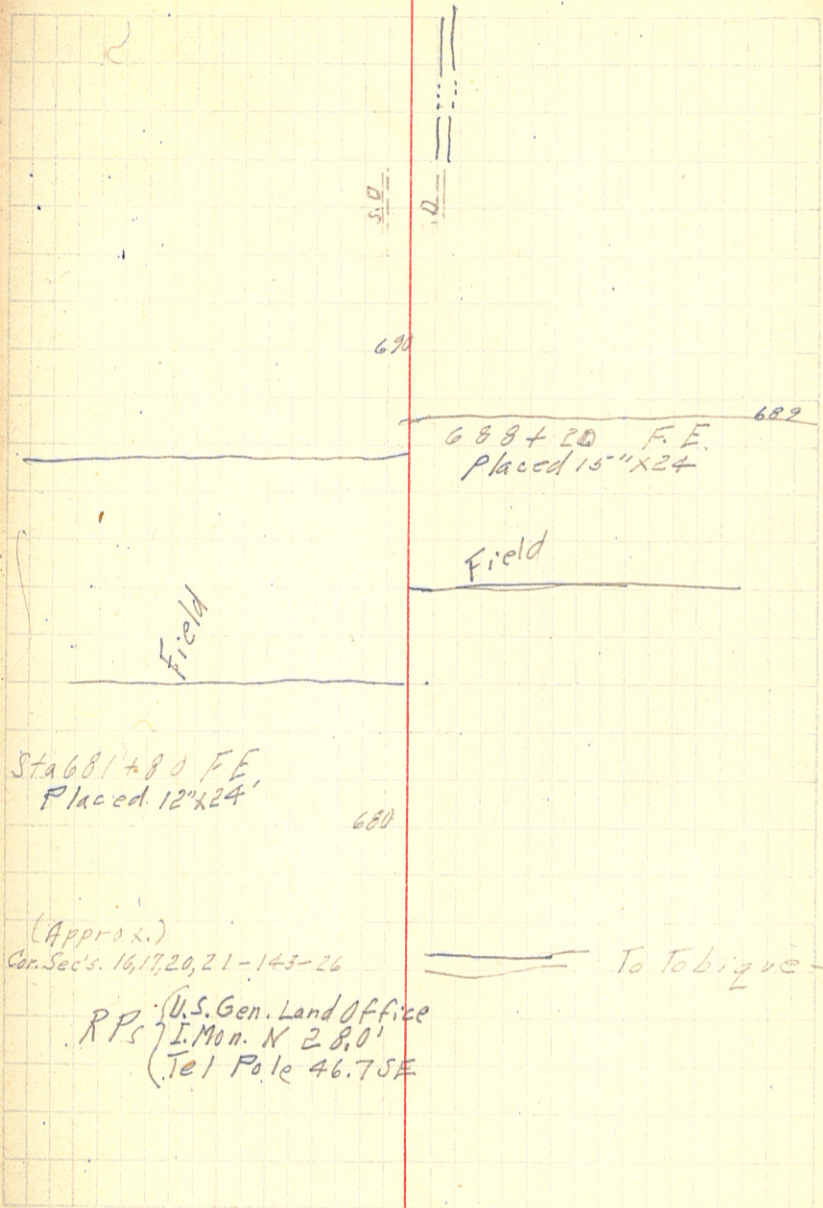 S.D.
D
690
689
688+20 F.E.
Placed 15"x24
Field
Field
Sta 681+80 F E,
Placed 12"x24'
680
(Approx.)
Cor. Sec's. 16,17,20,21-143-26
To Tobique-
RPs { U.S. Gen. Land Office
I. Mon. N 28.0'
Tel Pole 46.7 SE